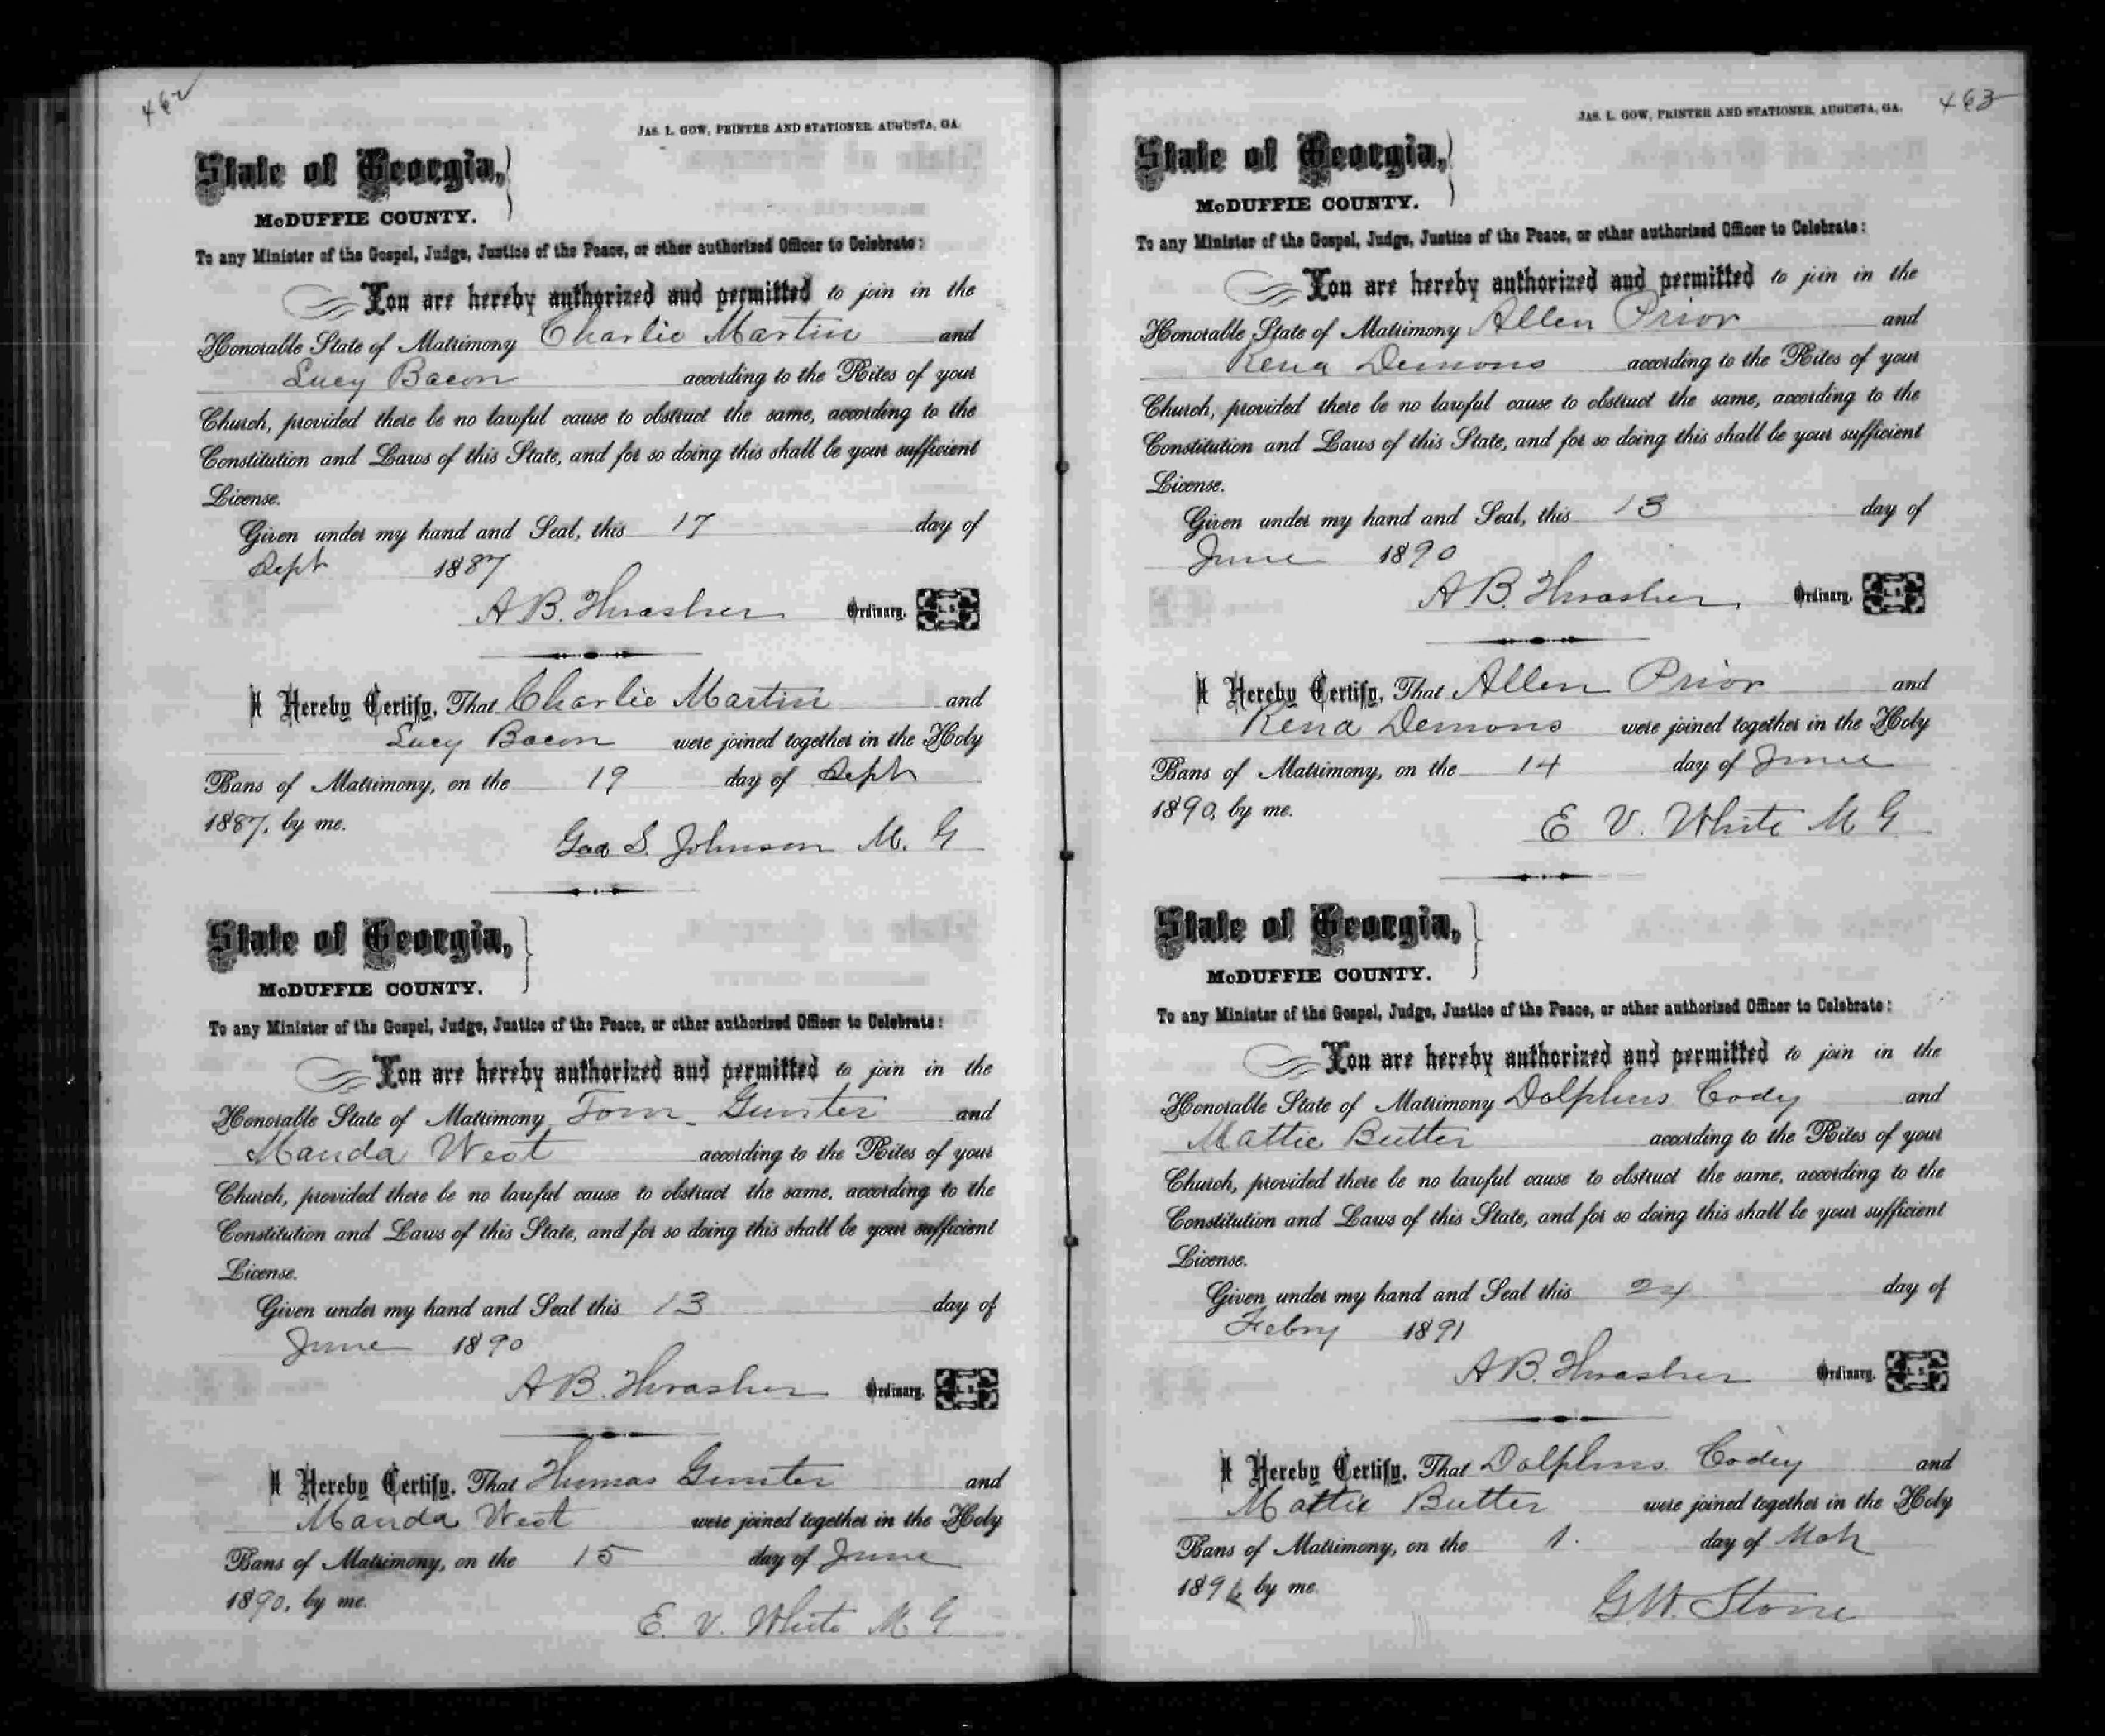 462
JAS. L. GOW, PRINTER AND STATIONER, AUGUSTA, GA.
State of Georgia,
McDUFFIE COUNTY.
To any Minister of the Gospel, Judge, Justice of the Peace, or other authorized Officer to Celebrate:
You are hereby authorized and permitted to join in the
Honorable State of Matrimony Charlie Martin and
Lucy Bacon according to the Rites of your
Church, provided there be no lawful cause to obstruct the same, according to the
Constitution and Laws of this State, and for so doing this shall be your sufficient
License.
Given under my hand and Seal, this 17 day of
Sept 1887
A B. Thrasher Ordinary. L. S.
I Hereby Certify, That Charlie Martin and
Lucy Bacon were joined together in the Holy
Bans of Matrimony, on the 19 day of Sept
1887, by me.
Geo S. Johnson M. G
State of Georgia,
McDUFFIE COUNTY.
To any Minister of the Gospel, Judge, Justice of the Peace, or other authorized Officer to Celebrate:
You are hereby authorized and permitted to join in the
Honorable State of Matrimony Tom Gunter and
Manda West according to the Rites of your
Church, provided there be no lawful cause to obstruct the same, according to the
Constitution and Laws of this State, and for so doing this shall be your sufficient
License.
Given under my hand and Seal this 13 day of
June 1890
A B. Thrasher Ordinary. L. S.
I Hereby Certify, That Thumas Gunter and
Manda West were joined together in the Holy
Bans of Matrimony, on the 15 day of June
1890, by me.
E. V. White M G
463
JAS. L. GOW, PRINTER AND STATIONER, AUGUSTA, GA.
State of Georgia,
McDUFFIE COUNTY.
To any Minister of the Gospel, Judge, Justice of the Peace, or other authorized Officer to Celebrate:
You are hereby authorized and permitted to join in the
Honorable State of Matrimony Allen Prior and
Rena Demons according to the Rites of your
Church, provided there be no lawful cause to obstruct the same, according to the
Constitution and Laws of this State, and for so doing this shall be your sufficient
License.
Given under my hand and Seal, this 13 day of
June 1890
A. B. Thrasher, Ordinary. L. S.
I Hereby Certify, That Allen Prior and
Rena Demons were joined together in the Holy
Bans of Matrimony, on the 14 day of June
1890, by me.
E V. White M G
State of Georgia,
McDUFFIE COUNTY.
To any Minister of the Gospel, Judge, Justice of the Peace, or other authorized Officer to Celebrate:
You are hereby authorized and permitted to join in the
Honorable State of Matrimony Dolphus Cody and
Mattie Butter according to the Rites of your
Church, provided there be no lawful cause to obstruct the same, according to the
Constitution and Laws of this State, and for so doing this shall be your sufficient
License.
Given under my hand and Seal this 24 day of
Febry 1891
A B. Thrasher Ordinary. L. S.
I Hereby Certify, That Dolphus Codey and
Mattie Butter were joined together in the Holy
Bans of Matrimony, on the 1. day of Mch
1891 by me.
G. W. Stone